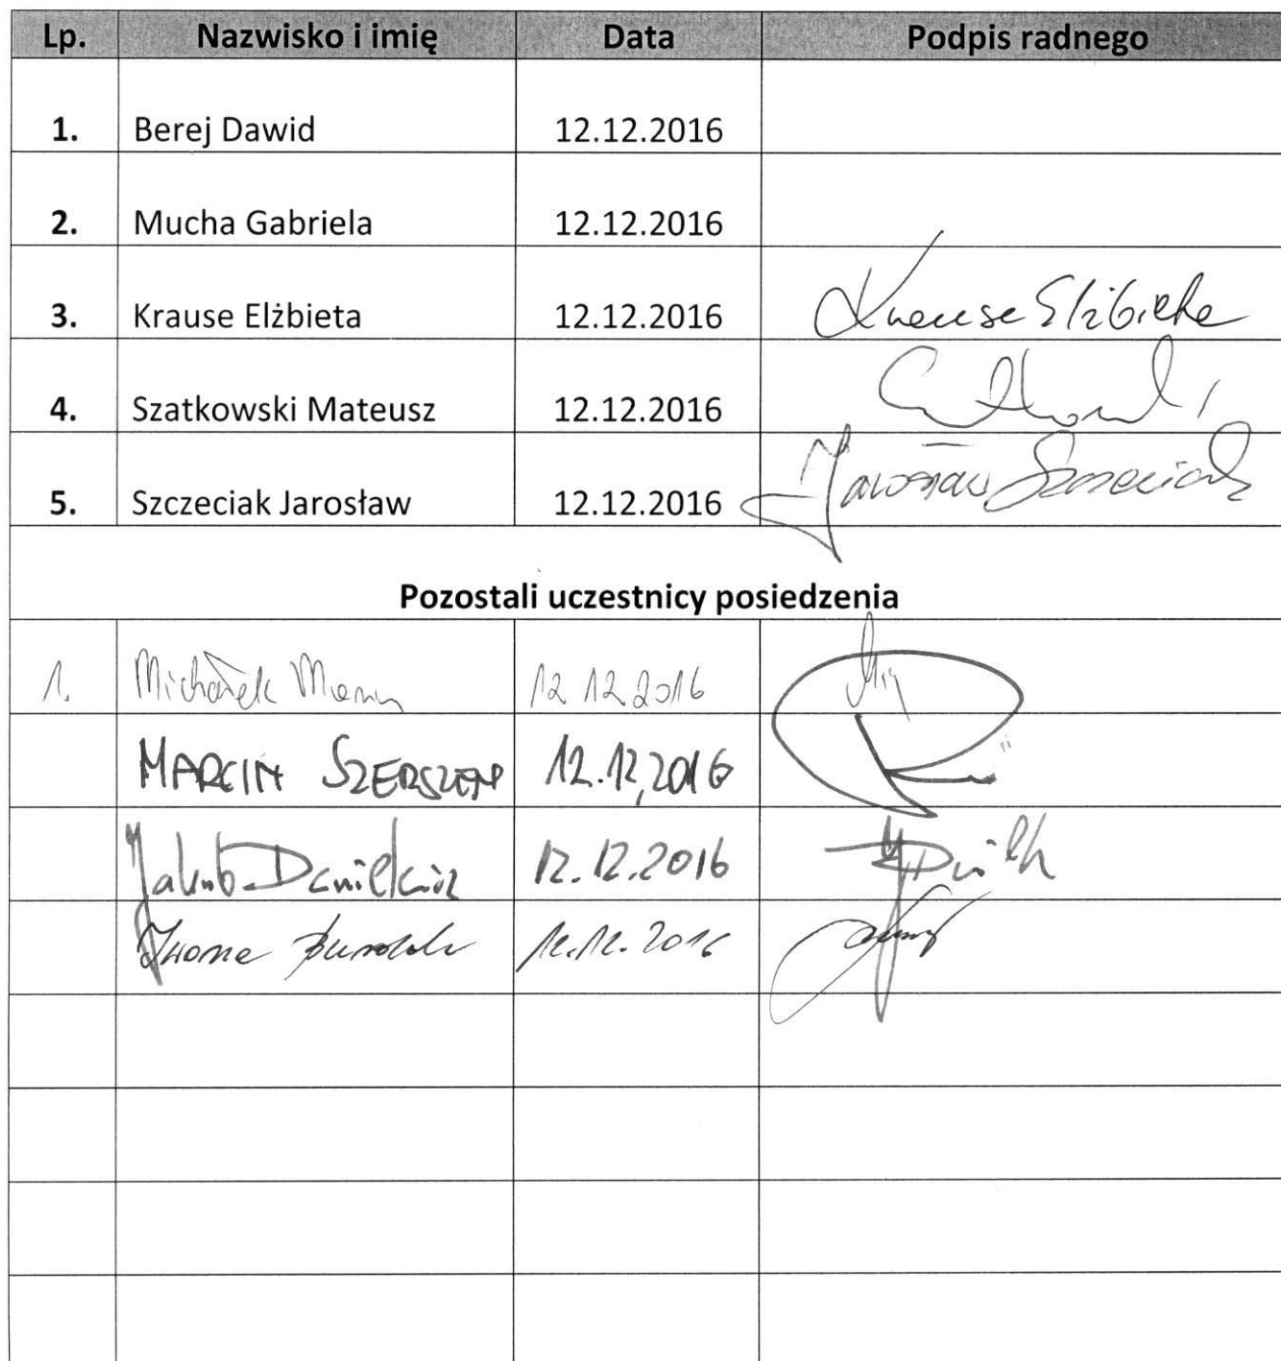 Lp. Nazwisko i imię Data Podpis radnego
1. Berej Dawid 12.12.2016
2. Mucha Gabriela 12.12.2016
3. Krause Elżbieta 12.12.2016 Krause Elżbieta
4. Szatkowski Mateusz 12.12.2016
5. Szczeciak Jarosław 12.12.2016 Jarosław Szczeciak
Pozostali uczestnicy posiedzenia
1. Michałek 12.12.2016
MARCIN SZERSZEŃ 12.12.2016
Jakub Danielkiewicz 12.12.2016
Iwona 12.12.2016